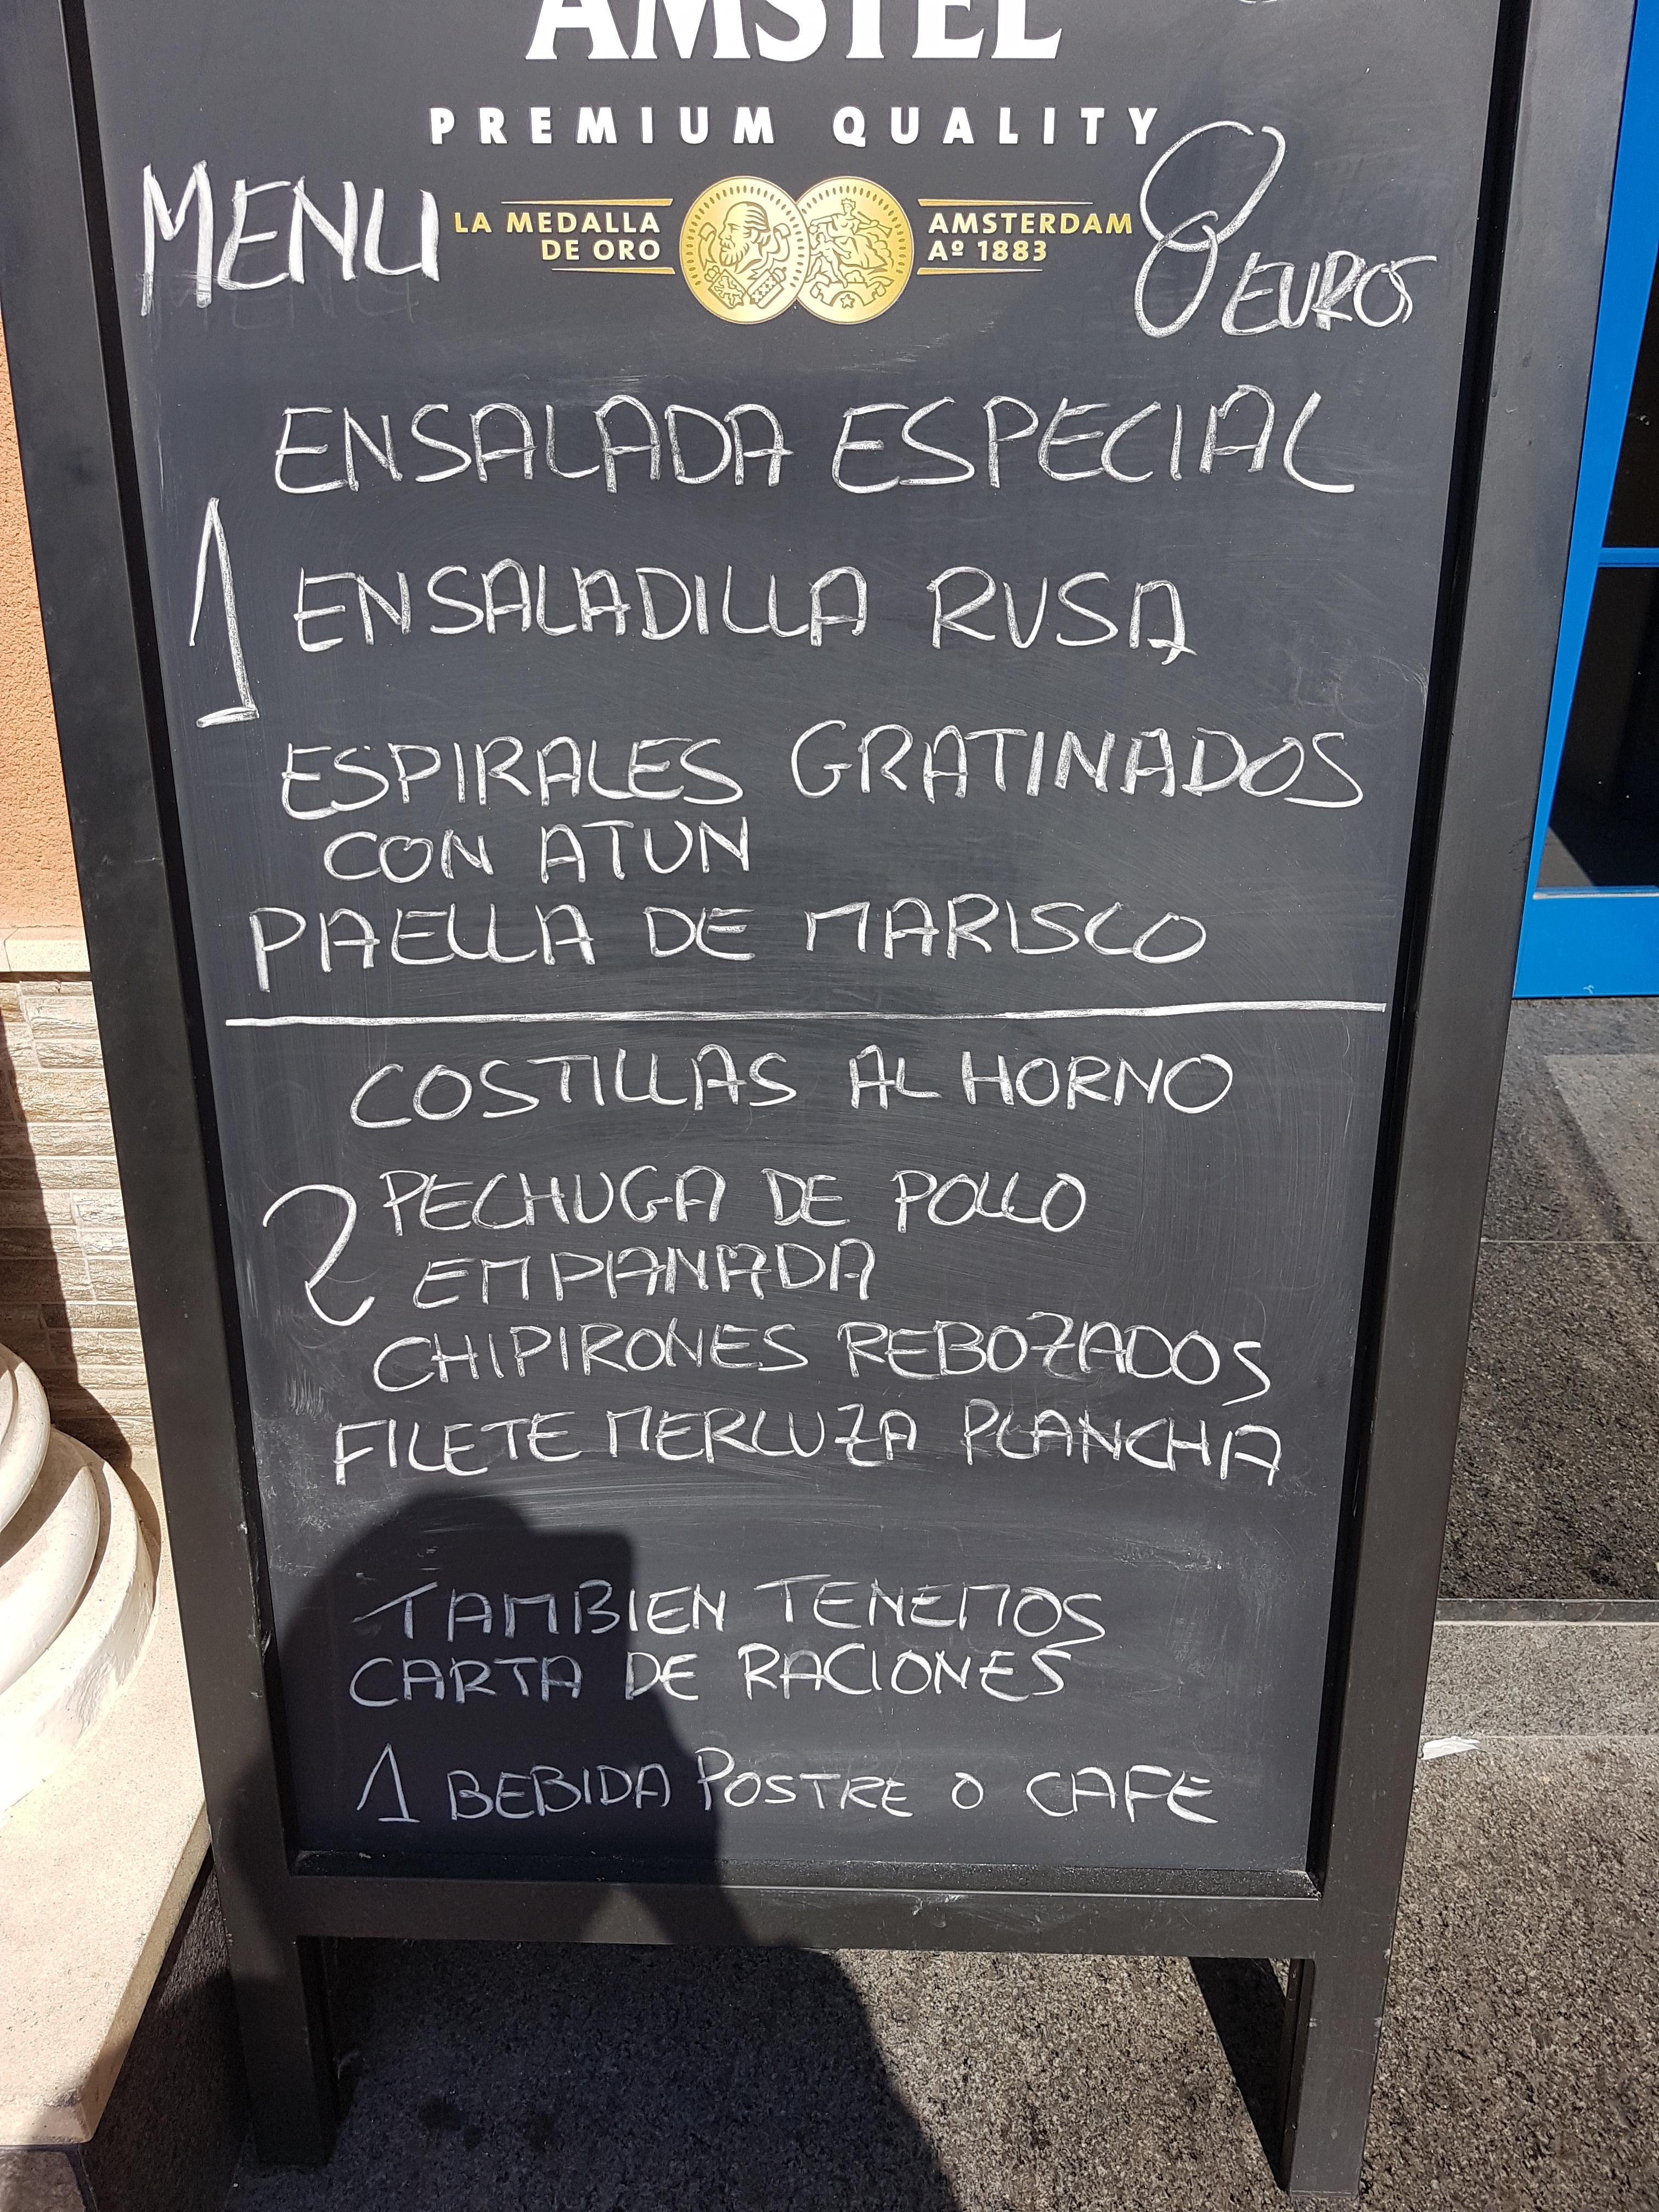 AMSTEL
PREMIUM QUALITY
MENU
LA MEDALLA
DE ORO
AMSTERDAM
Aº 1883
8 EUROS
ENSALADA ESPECIAL
1 ENSALADILLA RUSA
ESPIRALES GRATINADOS
CON ATUN
PAELLA DE MARISCO
COSTILLAS AL HORNO
2 PECHUGA DE POLLO
EMPANADA
CHIPIRONES REBOZADOS
FILETE MERLUZA PLANCHA
TAMBIEN TENEMOS
CARTA DE RACIONES
1 BEBIDA POSTRE O CAFE